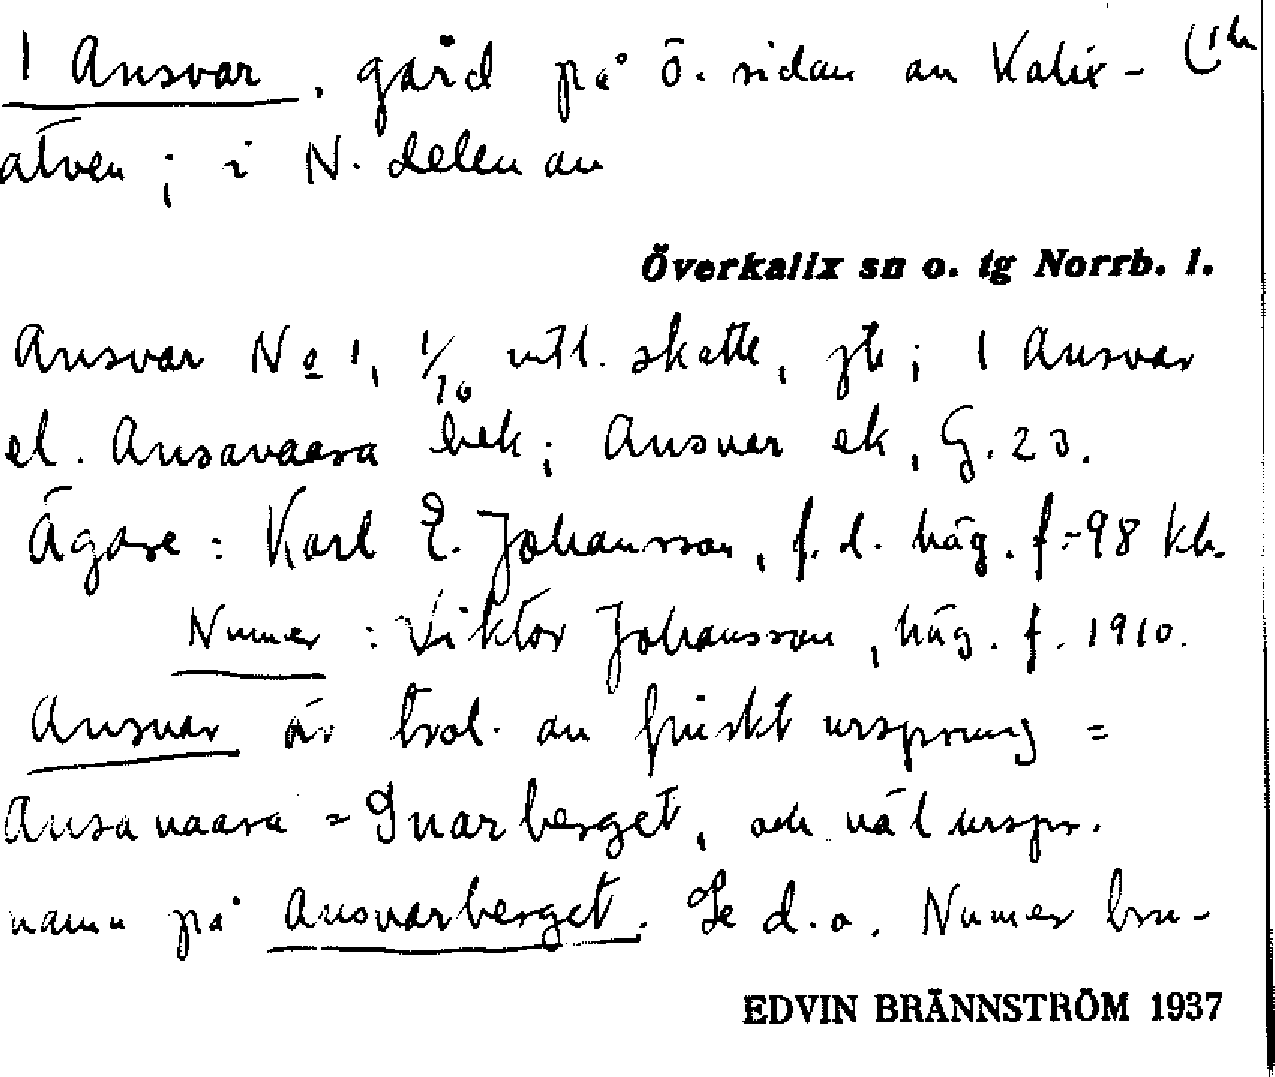 1 Ansvar, gård på ö. sidan av Kalix-
älven; i N. delen av
Överkalix sn o. tg Norrb. l.
Ansvar No 1, 1/16 mtl. skatte, jb; 1 Ansvar
el. Ansavaara bek; Ansvar ek, G. 23.
Ägare: Karl E. Johansson, f. d. häg. f.-98 kh.
Numer: Viktor Johansson, häg. f. 1910.
Ansvar är trol. av finskt ursprung =
Ansavaara = Snarberget, och väl urspr.
namn på Ansvarberget. Se d.o. Numer bru-
EDVIN BRÄNNSTRÖM 1937